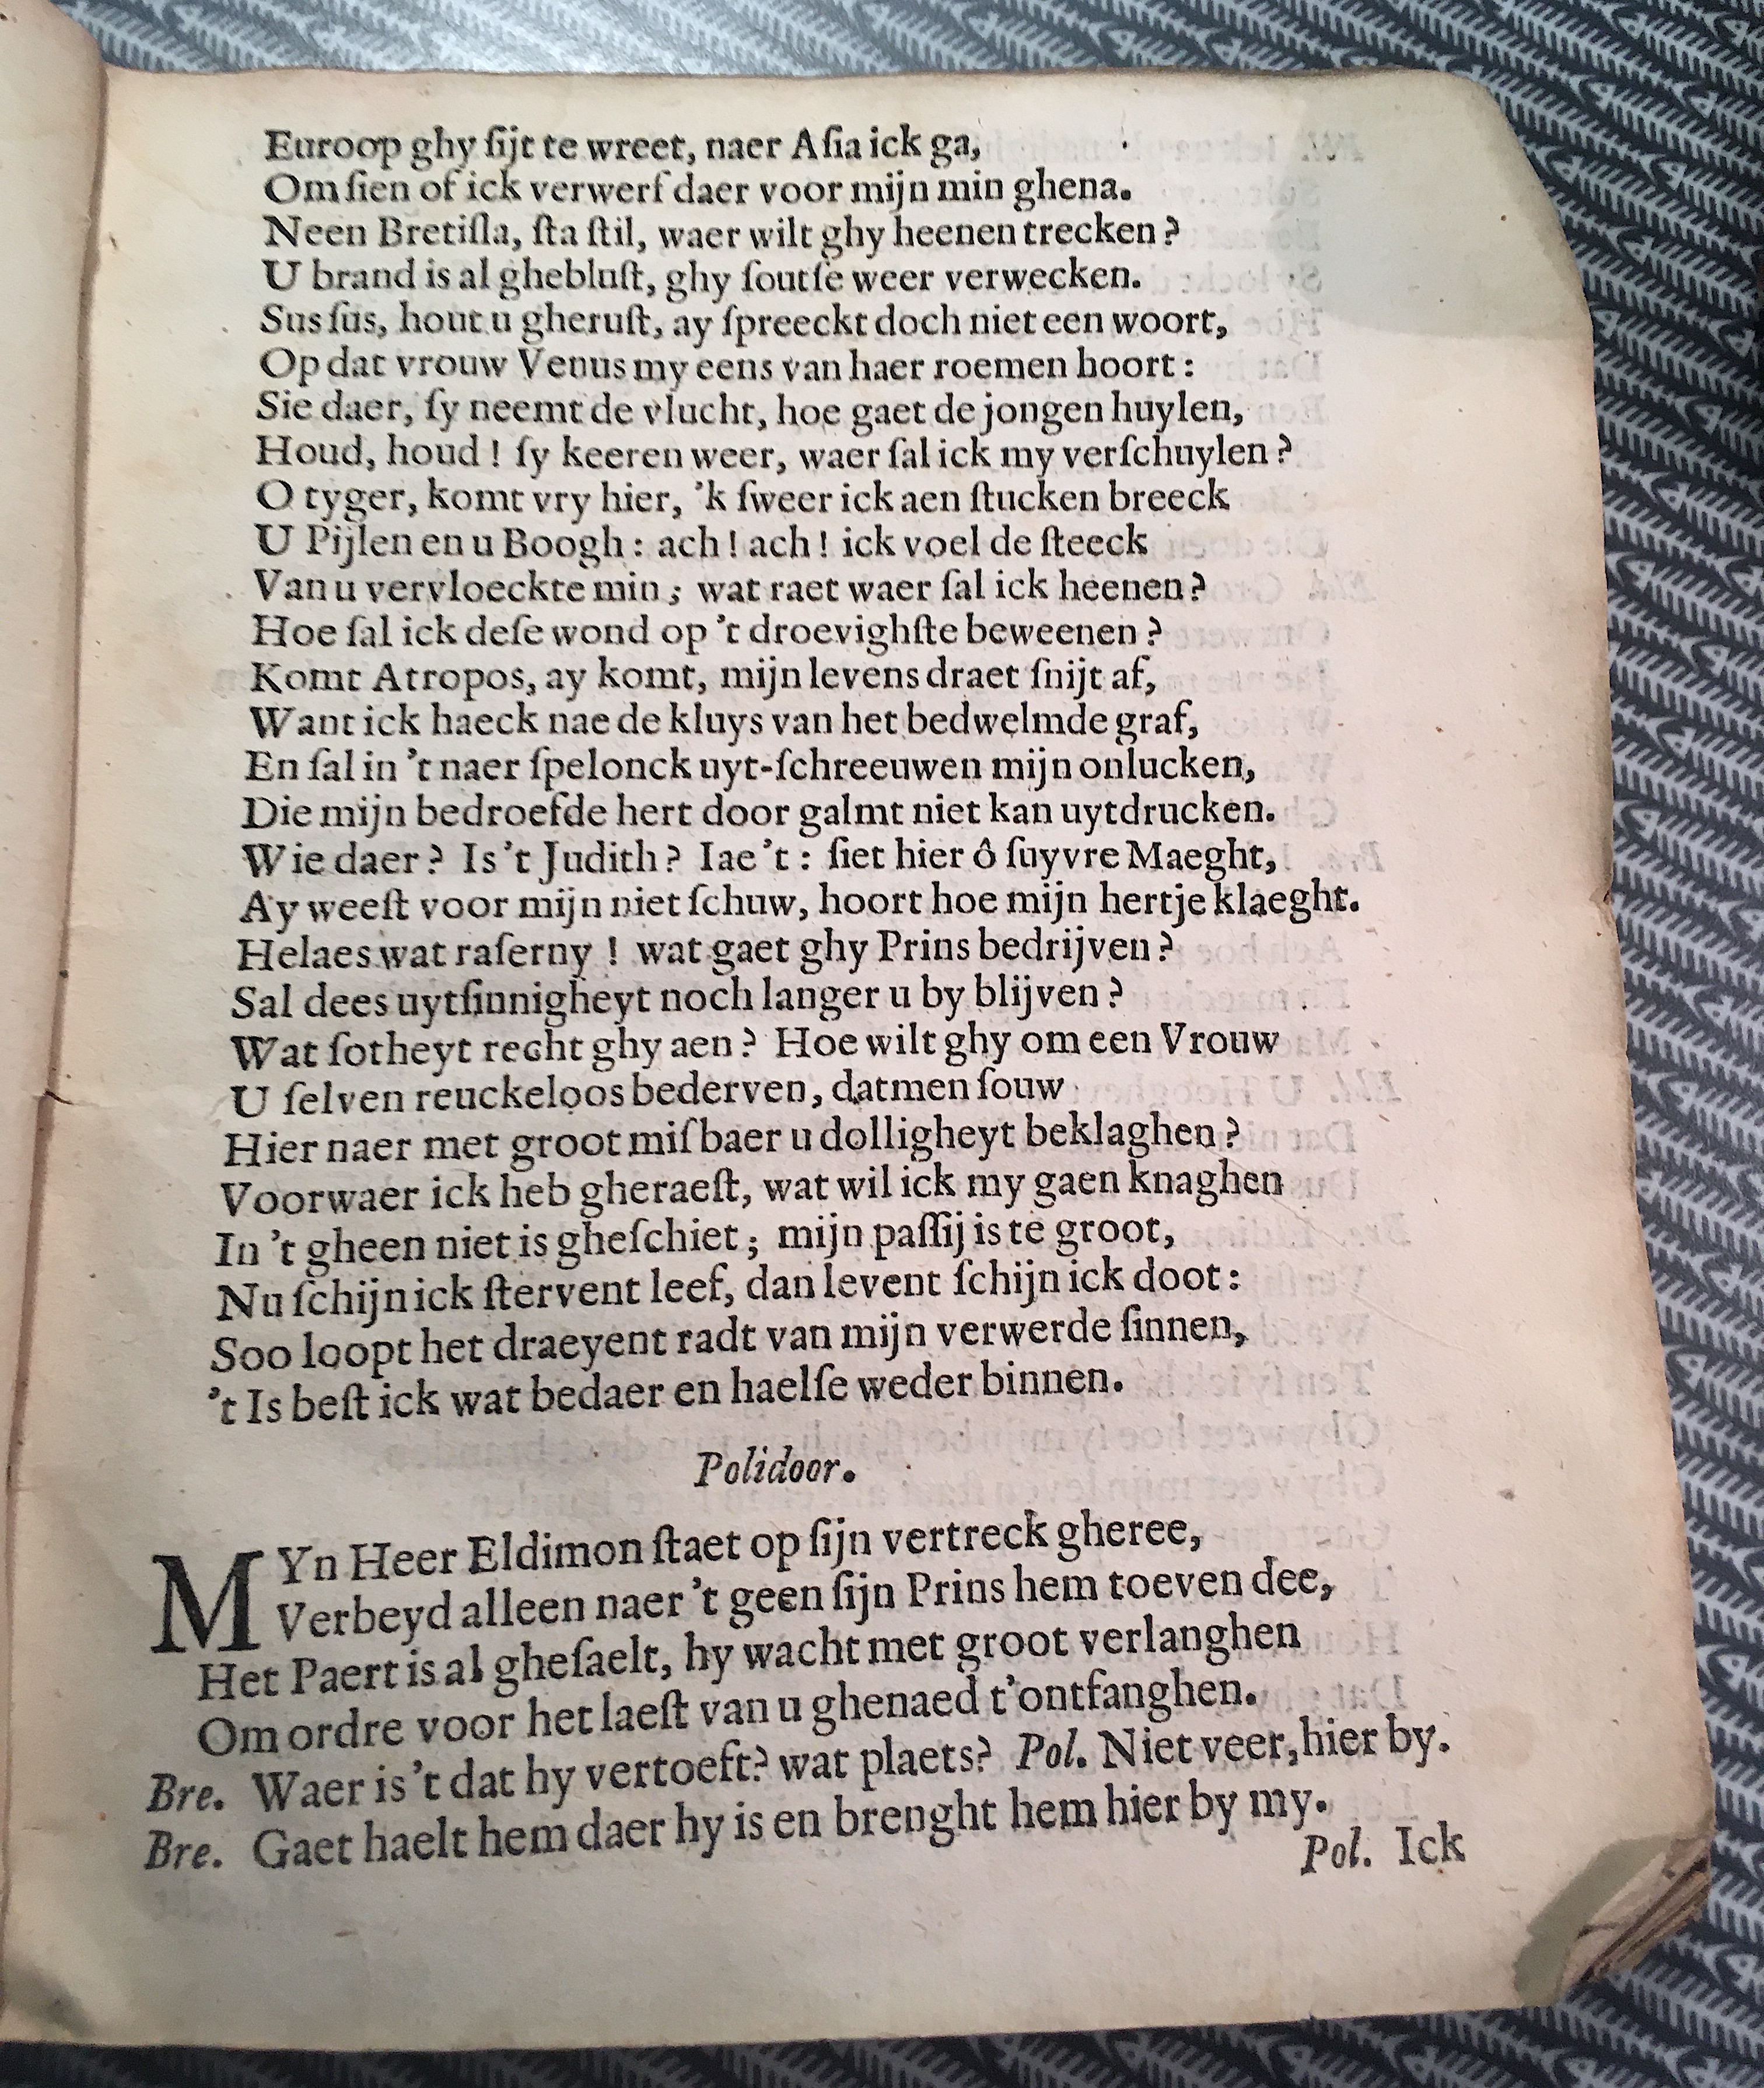 Euroop ghy ſijt te wreet, naer Aſia ick ga,
Om ſien of ick verwerf daer voor mijn min ghena.
Neen Bretiſla, ſta ſtil, waer wilt ghy heenen trecken?
U brand is al ghebluſt, ghy ſoutſe weer verwecken.
Sus ſus, hout u gheruſt, ay ſpreeckt doch niet een woort,
Op dat vrouw Venus my eens van haer roemen hoort:
Sie daer, ſy neemt de vlucht, hoe gaet de jongen huylen,
Houd, houd! ſy keeren weer, waer ſal ick my verſchuylen?
O tyger, komt vry hier, 'k ſweer ick aen ſtucken breeck
U Pijlen en u Boogh: ach! ach! ick voel de ſteeck
Van u vervloeckte min; wat raet waer ſal ick heenen?
Hoe ſal ick deſe wond op 't droevighſte beweenen?
Komt Atropos, ay komt, mijn levens draet ſnijt af,
Want ick haeck nae de kluys van het bedwelmde graf,
En ſal in 't naer ſpelonck uyt-ſchreeuwen mijn onlucken,
Die mijn bedroefde hert door galmt niet kan uytdrucken.
Wie daer? Is 't Judith? Iae 't: ſiet hier ô ſuyvre Maeght,
Ay weeſt voor mijn niet ſchuw, hoort hoe mijn hertje klaeght.
Helaes wat raſerny! wat gaet ghy Prins bedrijven?
Sal dees uytſinnigheyt noch langer u by blijven?
Wat ſotheyt recht ghy aen? Hoe wilt ghy om een Vrouw
U ſelven reuckeloos bederven, datmen ſouw
Hier naer met groot miſbaer u dolligheyt beklaghen?
Voorwaer ick heb gheraeſt, wat wil ick my gaen knaghen
In 't gheen niet is gheſchiet; mijn paſſij is te groot,
Nu ſchijn ick ſtervent leef, dan levent ſchijn ick doot:
Soo loopt het draeyent radt van mijn verwerde ſinnen,
't Is beſt ick wat bedaer en haelſe weder binnen.
Polidoor.
MYn Heer Eldimon ſtaet op ſijn vertreck gheree,
Verbeyd alleen naer 't geen ſijn Prins hem toeven dee,
Het Paert is al gheſaelt, hy wacht met groot verlanghen
Om ordre voor het laeſt van u ghenaed t'ontfanghen.
Bre. Waer is 't dat hy vertoeft? wat plaets? Pol. Niet veer, hier by.
Bre. Gaet haelt hem daer hy is en brenght hem hier by my.
Pol. Ick